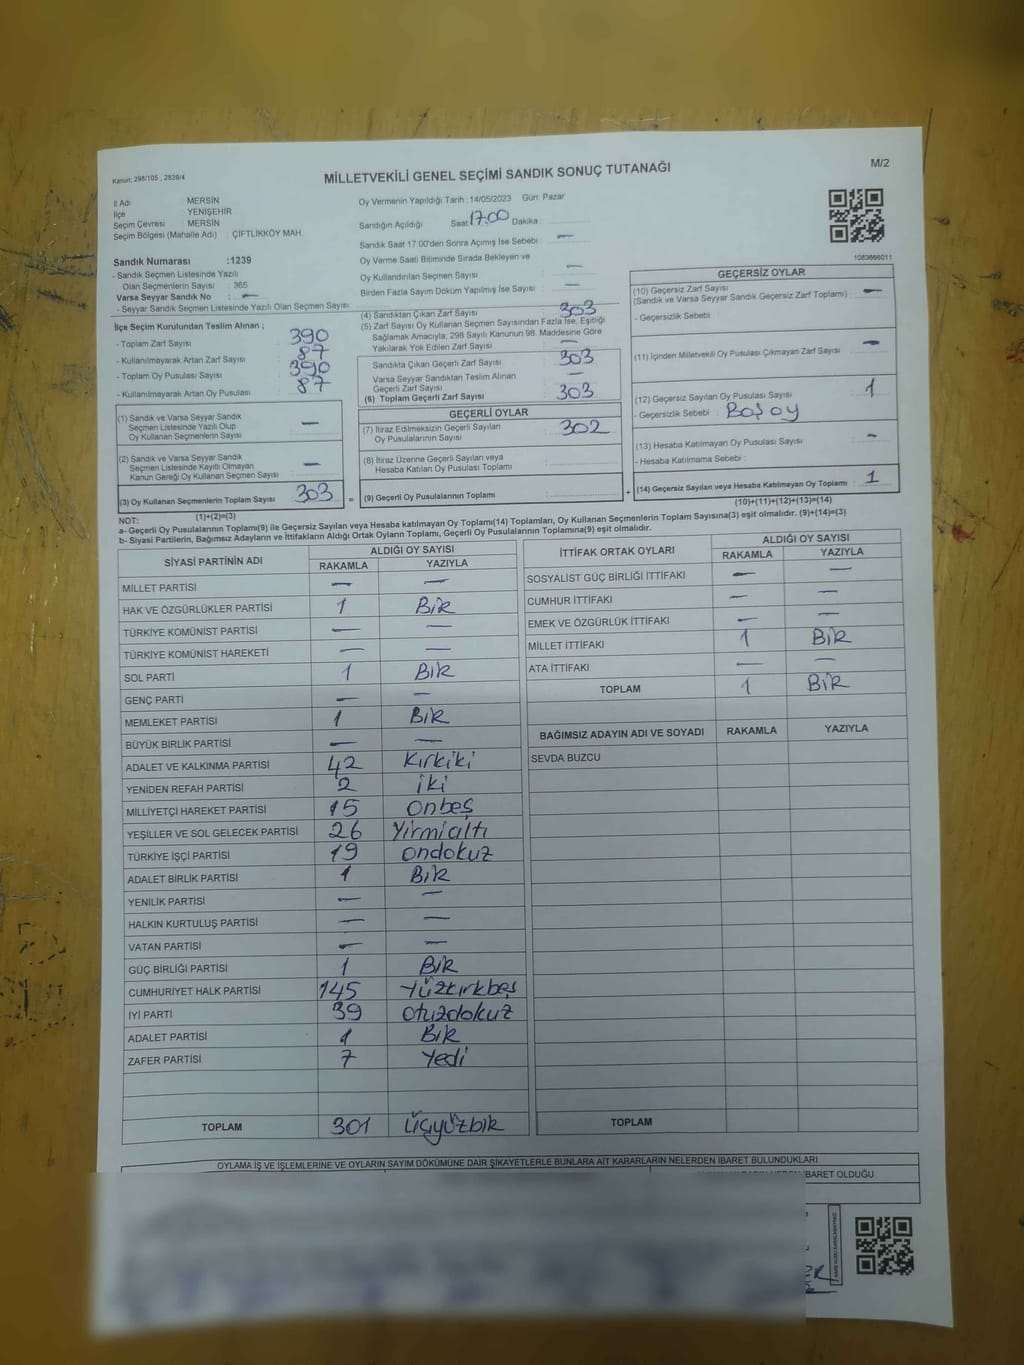 Kanun: 298/105, 2839/4
MİLLETVEKİLİ GENEL SEÇİMİ SANDIK SONUÇ TUTANAĞI
M/2
İl Adı MERSİN
İlçe YENİŞEHİR
Seçim Çevresi MERSİN
Seçim Bölgesi (Mahalle Adı) : ÇİFTLİKKÖY MAH.
Sandık Numarası :1239
- Sandık Seçmen Listesinde Yazılı
Olan Seçmenlerin Sayısı : 365
Varsa Seyyar Sandık No : —
- Seyyar Sandık Seçmen Listesinde Yazılı Olan Seçmen Sayısı:
İlçe Seçim Kurulundan Teslim Alınan ;
- Toplam Zarf Sayısı 390
- Kullanılmayarak Artan Zarf Sayısı 87
- Toplam Oy Pusulası Sayısı 390
- Kullanılmayarak Artan Oy Pusulası 87
(1) Sandık ve Varsa Seyyar Sandık
Seçmen Listesinde Yazılı Olup
Oy Kullanan Seçmenlerin Sayısı —
(2) Sandık ve Varsa Seyyar Sandık
Seçmen Listesinde Kayıtlı Olmayan
Kanun Gereği Oy Kullanan Seçmen Sayısı —
(3) Oy Kullanan Seçmenlerin Toplam Sayısı 303 =
(1)+(2)=(3)
Oy Vermenin Yapıldığı Tarih : 14/05/2023 Gün: Pazar
Sandığın Açıldığı Saat 17:00 Dakika :
Sandık Saat 17.00'den Sonra Açılmış İse Sebebi : —
Oy Verme Saati Bitiminde Sırada Bekleyen ve
Oy Kullandırılan Seçmen Sayısı —
Birden Fazla Sayım Döküm Yapılmış İse Sayısı : —
(4) Sandıktan Çıkan Zarf Sayısı 303
(5) Zarf Sayısı Oy Kullanan Seçmen Sayısından Fazla İse, Eşitliği
Sağlamak Amacıyla, 298 Sayılı Kanunun 98. Maddesine Göre
Yakılarak Yok Edilen Zarf Sayısı —
Sandıkta Çıkan Geçerli Zarf Sayısı 303
Varsa Seyyar Sandıktan Teslim Alınan
Geçerli Zarf Sayısı —
(6) Toplam Geçerli Zarf Sayısı 303
GEÇERLİ OYLAR
(7) İtiraz Edilmeksizin Geçerli Sayılan
Oy Pusulalarının Sayısı 302
(8) İtiraz Üzerine Geçerli Sayılan veya
Hesaba Katılan Oy Pusulası Toplamı
(9) Geçerli Oy Pusulalarının Toplamı +
1083666011
GEÇERSİZ OYLAR
(10) Geçersiz Zarf Sayısı —
(Sandık ve Varsa Seyyar Sandık Geçersiz Zarf Toplamı)
- Geçersizlik Sebebi
(11) İçinden Milletvekili Oy Pusulası Çıkmayan Zarf Sayısı —
(12) Geçersiz Sayılan Oy Pusulası Sayısı 1
- Geçersizlik Sebebi : Boş oy
(13) Hesaba Katılmayan Oy Pusulası Sayısı -
- Hesaba Katılmama Sebebi :
(14) Geçersiz Sayılan veya Hesaba Katılmayan Oy Toplamı : 1
(10)+(11)+(12)+(13)=(14)
NOT:
a- Geçerli Oy Pusulalarının Toplamı(9) ile Geçersiz Sayılan veya Hesaba katılmayan Oy Toplamı(14) Toplamları, Oy Kullanan Seçmenlerin Toplam Sayısına(3) eşit olmalıdır. (9)+(14)=(3)
b- Siyasi Partilerin, Bağımsız Adayların ve İttifakların Aldığı Ortak Oyların Toplamı, Geçerli Oy Pusulalarının Toplamına(9) eşit olmalıdır.
SİYASİ PARTİNİN ADI ALDIĞI OY SAYISI
RAKAMLA YAZIYLA
MİLLET PARTİSİ — —
HAK VE ÖZGÜRLÜKLER PARTİSİ 1 Bir
TÜRKİYE KOMÜNİST PARTİSİ — —
TÜRKİYE KOMÜNİST HAREKETİ — —
SOL PARTİ 1 Bir
GENÇ PARTİ — —
MEMLEKET PARTİSİ 1 Bir
BÜYÜK BİRLİK PARTİSİ — —
ADALET VE KALKINMA PARTİSİ 42 Kırkiki
YENİDEN REFAH PARTİSİ 2 iki
MİLLİYETÇİ HAREKET PARTİSİ 15 onbeş
YEŞİLLER VE SOL GELECEK PARTİSİ 26 Yirmialtı
TÜRKİYE İŞÇİ PARTİSİ 19 ondokuz
ADALET BİRLİK PARTİSİ 1 Bir
YENİLİK PARTİSİ — —
HALKIN KURTULUŞ PARTİSİ — —
VATAN PARTİSİ — —
GÜÇ BİRLİĞİ PARTİSİ 1 Bir
CUMHURİYET HALK PARTİSİ 145 Yüzkırkbeş
İYİ PARTİ 39 otuzdokuz
ADALET PARTİSİ 1 Bir
ZAFER PARTİSİ 7 Yedi
TOPLAM 301 üçyüzbir
İTTİFAK ORTAK OYLARI ALDIĞI OY SAYISI
RAKAMLA YAZIYLA
SOSYALİST GÜÇ BİRLİĞİ İTTİFAKI — —
CUMHUR İTTİFAKI — —
EMEK VE ÖZGÜRLÜK İTTİFAKI — —
MİLLET İTTİFAKI 1 Bir
ATA İTTİFAKI — —
TOPLAM 1 Bir
BAĞIMSIZ ADAYIN ADI VE SOYADI RAKAMLA YAZIYLA
SEVDA BUZCU
TOPLAM
OYLAMA İŞ VE İŞLEMLERİNE VE OYLARIN SAYIM DÖKÜMÜNE DAİR ŞİKAYETLERLE BUNLARA AİT KARARLARIN NELERDEN İBARET BULUNDUKLARI
İBARET OLDUĞU